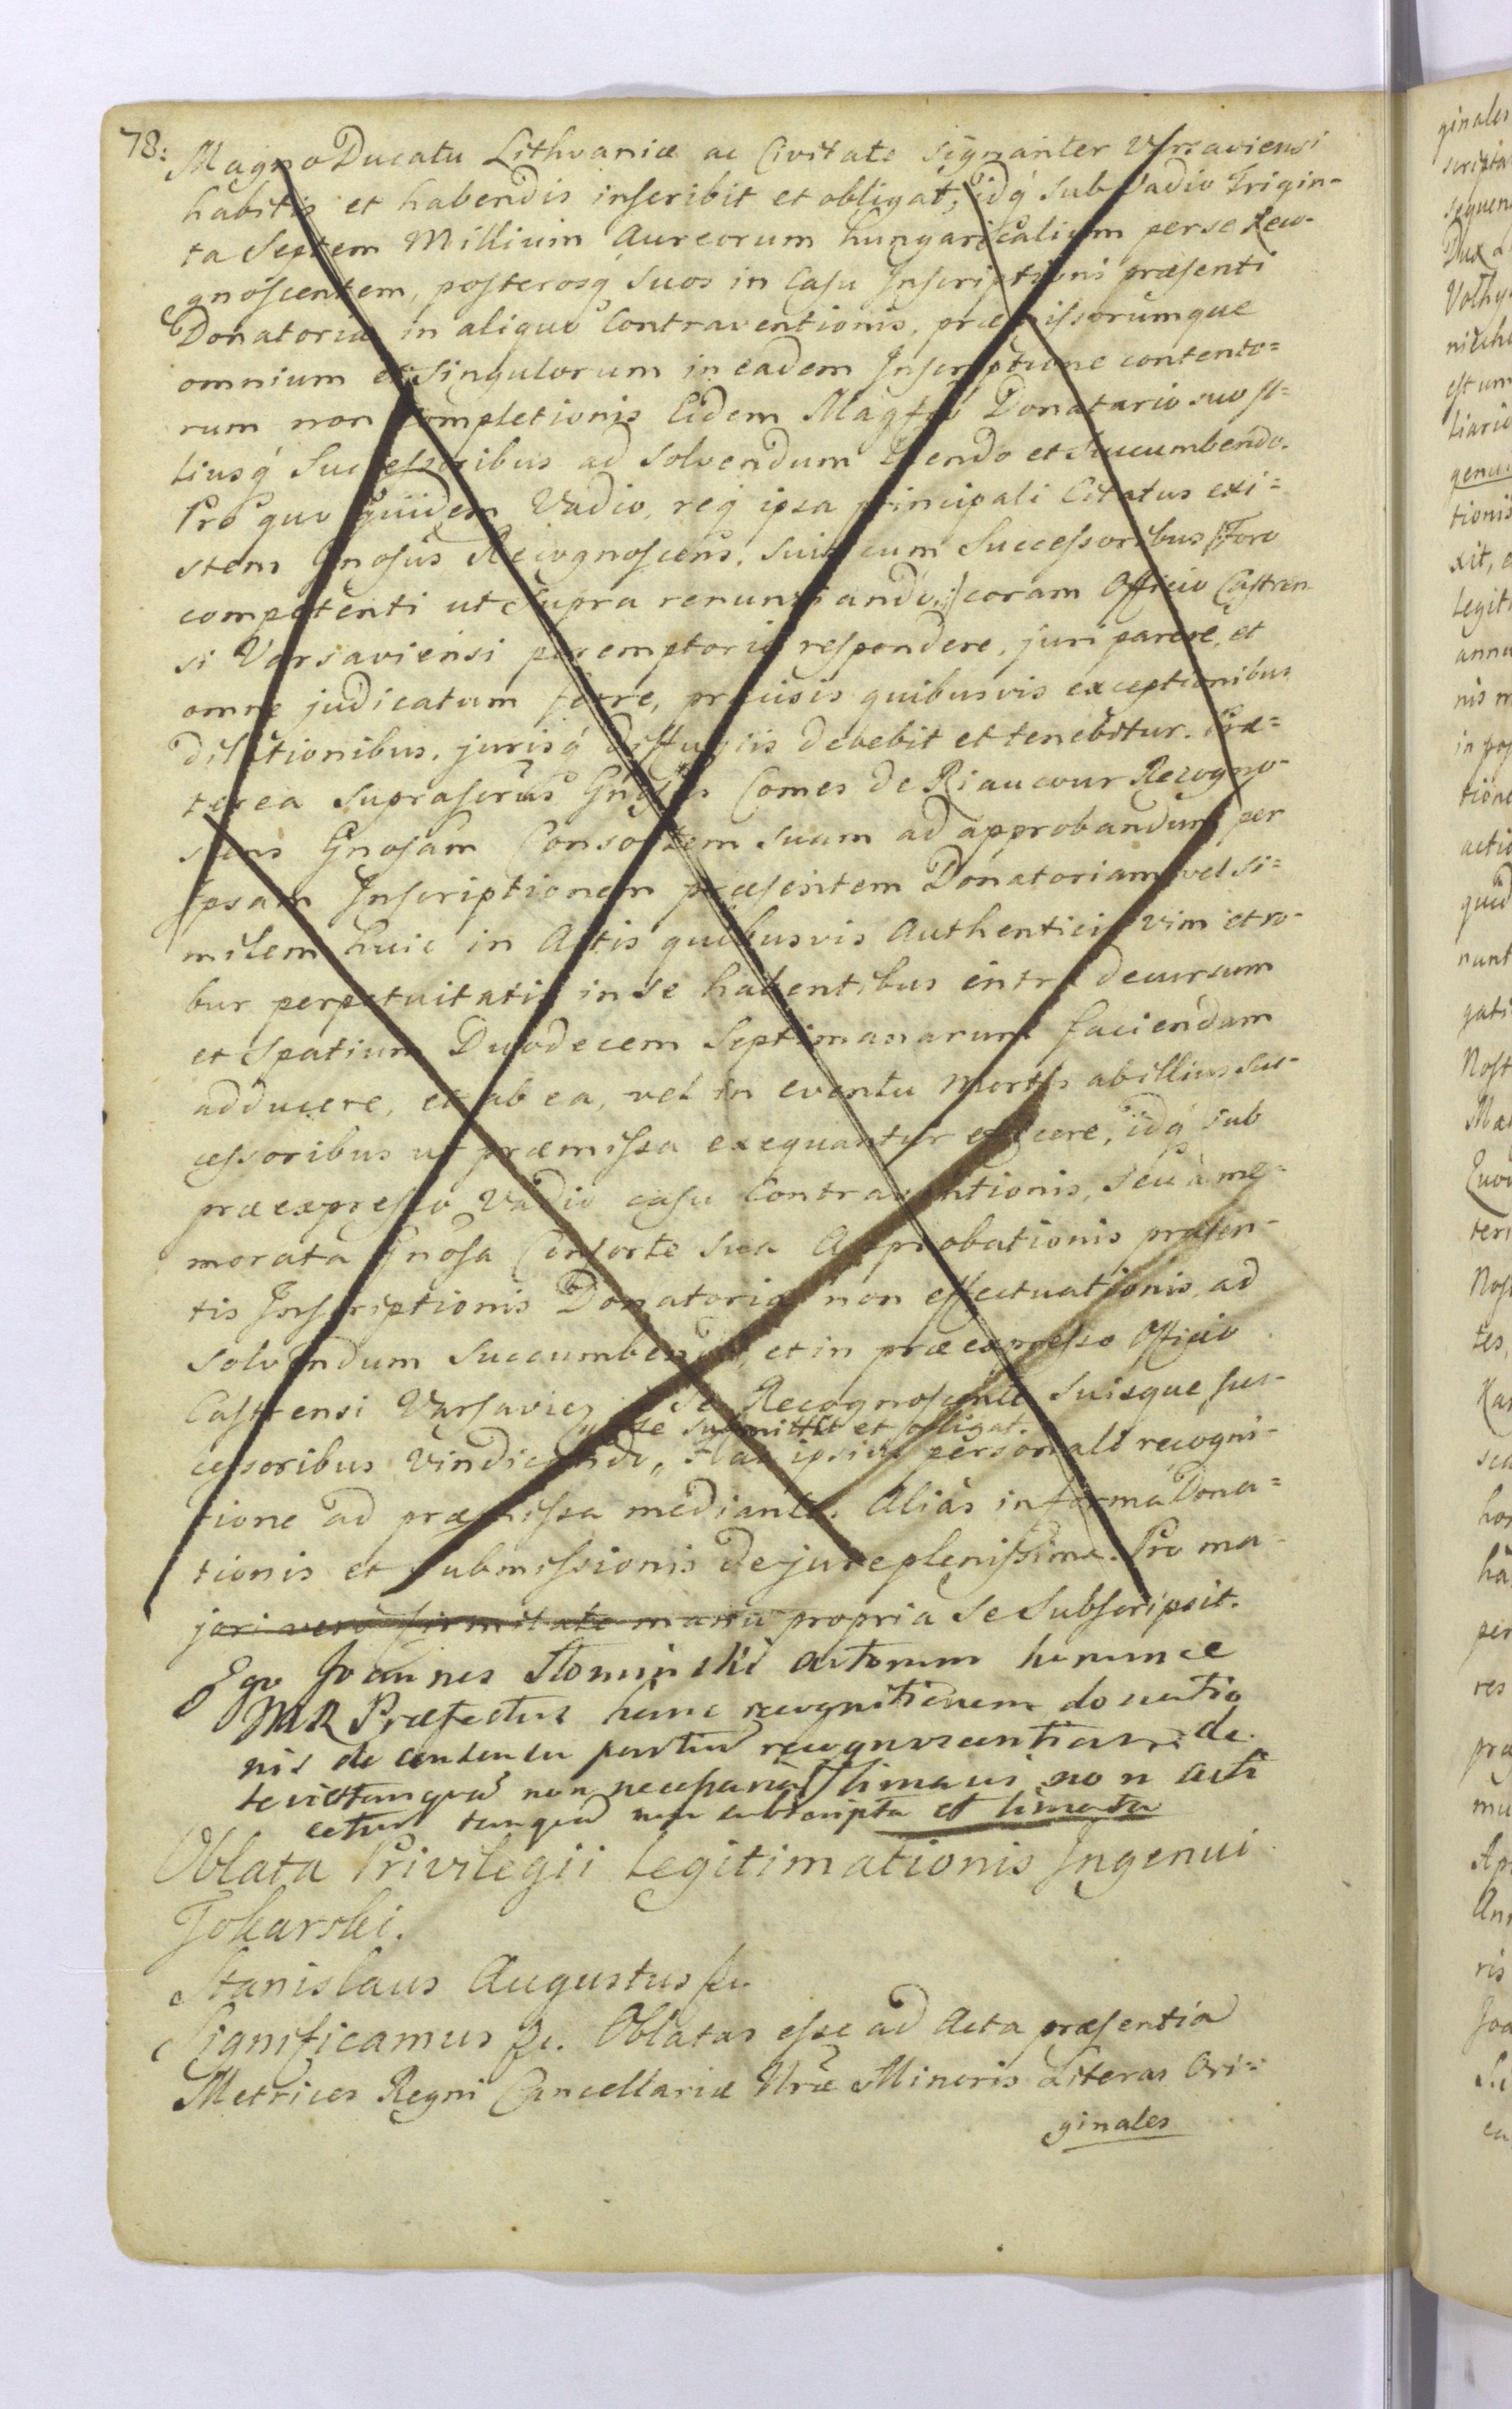 78:
Magno Ducatu Lithvaniæ ac Civitate signanter Varsaviensi
habitis et habendis inscribit et obligat, idq́ sub Vadio Trigin=
ta Septem Millium Aureorum hungaricalium per se Reco-
gnoscentem, posterosq́ suos in Casu Inscriptioni præsenti
Donatoriæ in aliquo Contraventionis, præmissorumque
omnium et singulorum in eadem Inscriptione contento=
rum non completionis Eidem Donatario suo il=
liusq́ Successoribus ad solvendum et succumbendo.
Pro quo quidem Vadio, req́ ipsa principali Citatus exi=
stens Gnosus Recognoscens, suis cum Successoribus Foro
competenti ut supra renuntiando coram Officio Castren
si Varsaviensi peremptorie respondere, juri parere, et
omne judicatum ferre, præcisis quibusvis exceptionibus
dilationibus, jurisq́ diffugiis debebit et tenebitur. Præ=
terea suprascrûs Gnosus Comes de Riaucour Recogno-
scens Gnosam Consortem suam ad approbandum per
Ipsam Inscriptionem præsentem Donatoriam vel si=
milem huic in Actis quibusvis Authenticis vim et ro-
bur perpetuitatis in se habentibus intra decursum
et spatium Duodecem Septimanarum faciendam
adducere, et ab ea, vel in eventu mortis ab illius suc-
cessoribus ut præmissa exequantur efficere, idq́ sub
præexpresso Vadio casu Contraventionis, seu à me-
morata Gnosa Consorte sua Approbationis præsen-
tis Inscriptionis Donatoriæ non effectuationis, ad
solvendum succumbendo, et in præexpresso Officio
Castrensi Varsavien se Recognoscente suisque suc-
se submittit et obligat.
cessoribus vindicando, ac ipsius personali recogni-
tione ad præmissa mediante. Aliàs in forma Dona=
tionis et submissionis de jure plenissima. Pro ma-
jori vero firmitate manu propria se subscripsit.
Ego Joannes Słominski actorum horumce
MR Præfectus hanc recognitionem donatio
nis de contentu partium recognoscentium de
non necessaria non acti
cetur tanquã non subscripta et limata
Oblata Privilegii Legitimationis Ingenui
Tokarski.
Stanislaus Augustus &c.
Significamus &c. Oblatas esse ad Acta præsentia
Metrices Regni Cancellariæ Nræ Minoris Literas Ori=
ginales